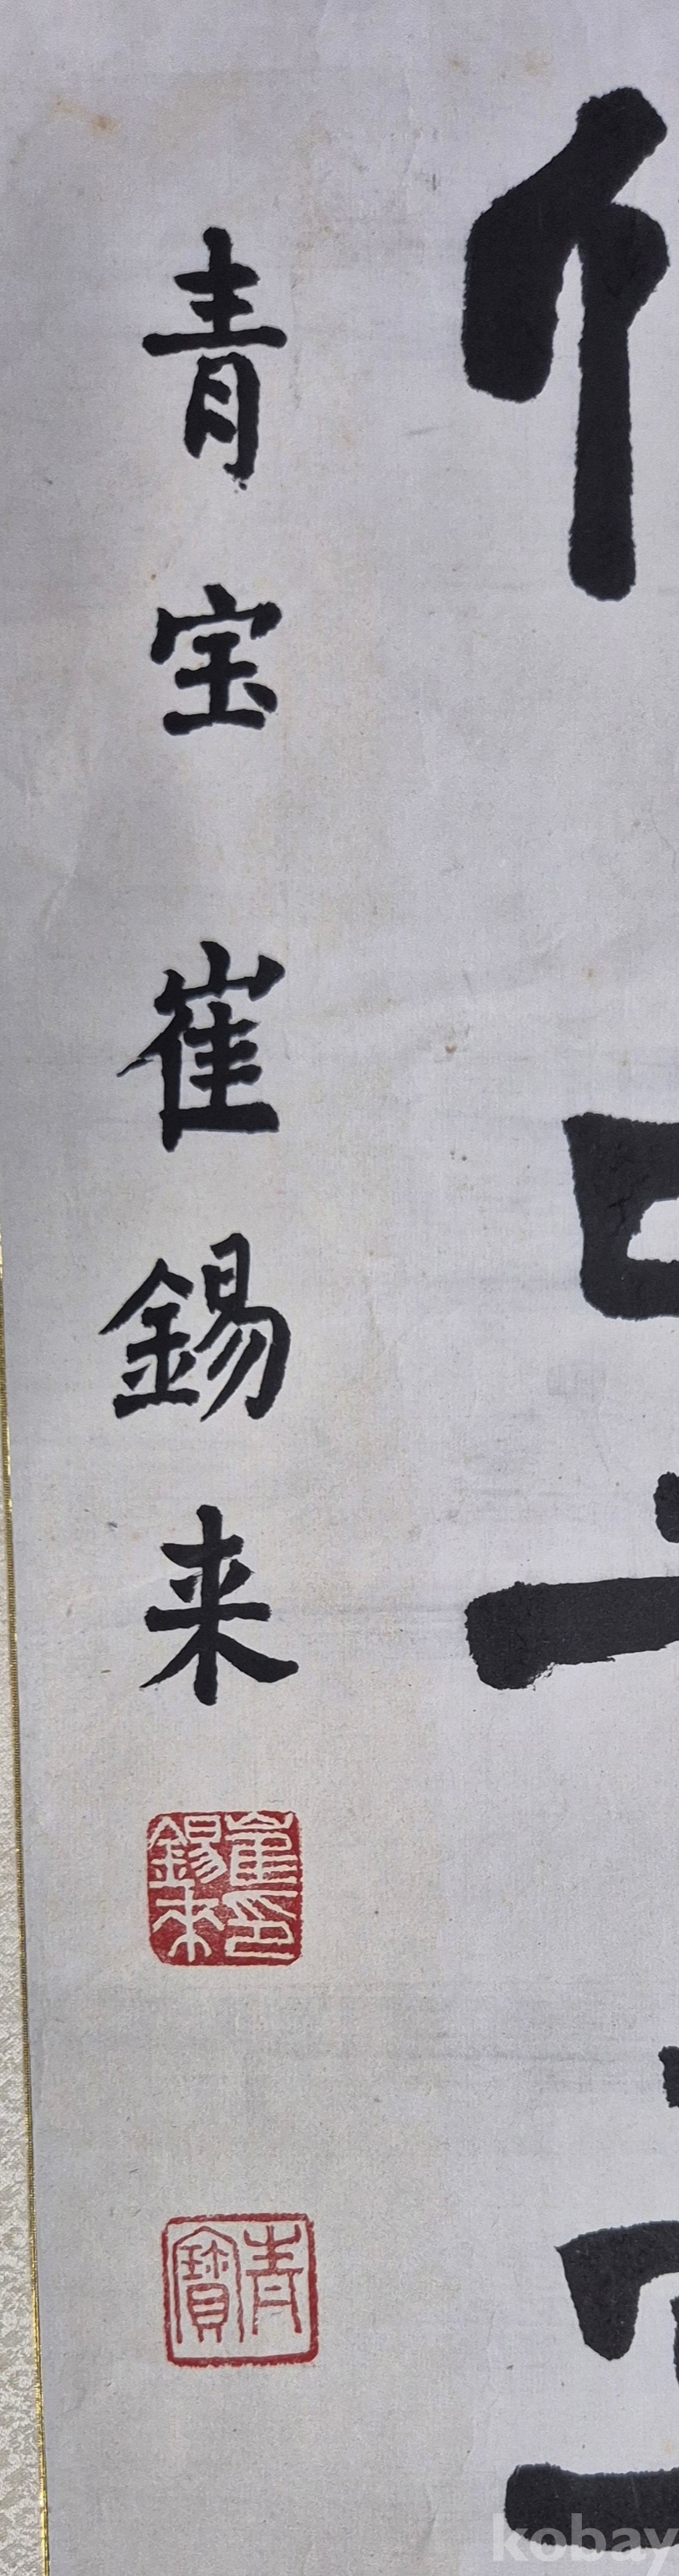 青宝 崔錫来
崔印
錫来
青寶
kobay